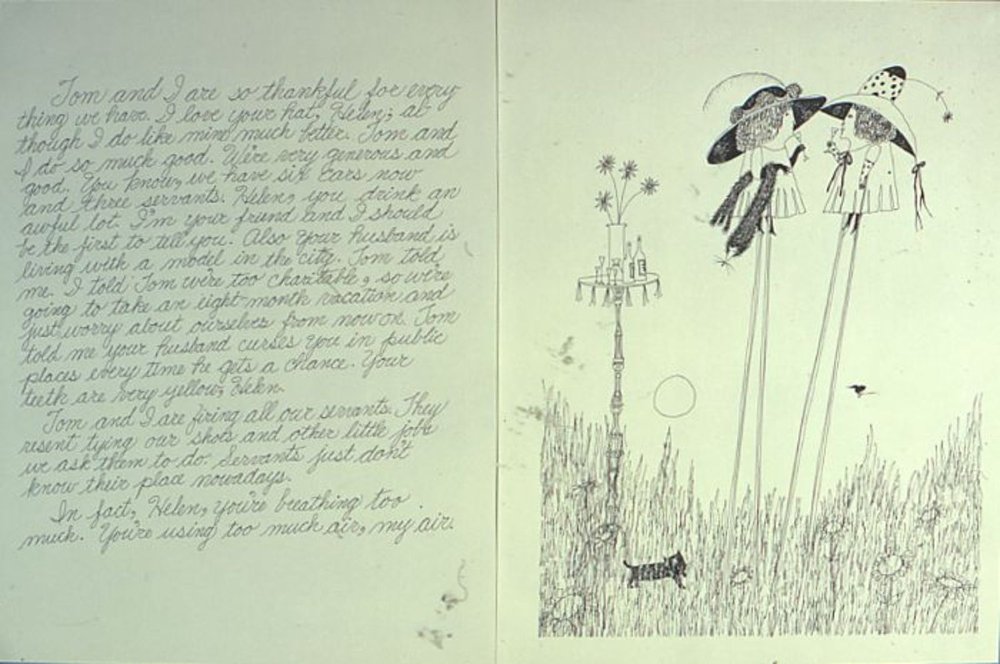 Tom and I are so thankful for every
thing we have. I love your hat, Helen, al
though I do like mine much better. Tom and
I do so much good. We're very generous and
good. You know, we have six cars now
and three servants. Helen, you drink an
awful lot. I'm your friend and I should
be the first to tell you. Also your husband is
living with a model in the city. Tom told
me. I told Tom we're too charitable, so we're
going to take an eight-month vacation and
just worry about ourselves from now on. Tom
told me your husband curses you in public
places every time he gets a chance. Your
teeth are very yellow, Helen.
Tom and I are firing all our servants. They
resent tying our shoes and other little jobs
we ask them to do. Servants just don't
know their place nowadays.
In fact, Helen, you're breathing too
much. You're using too much air, my air.